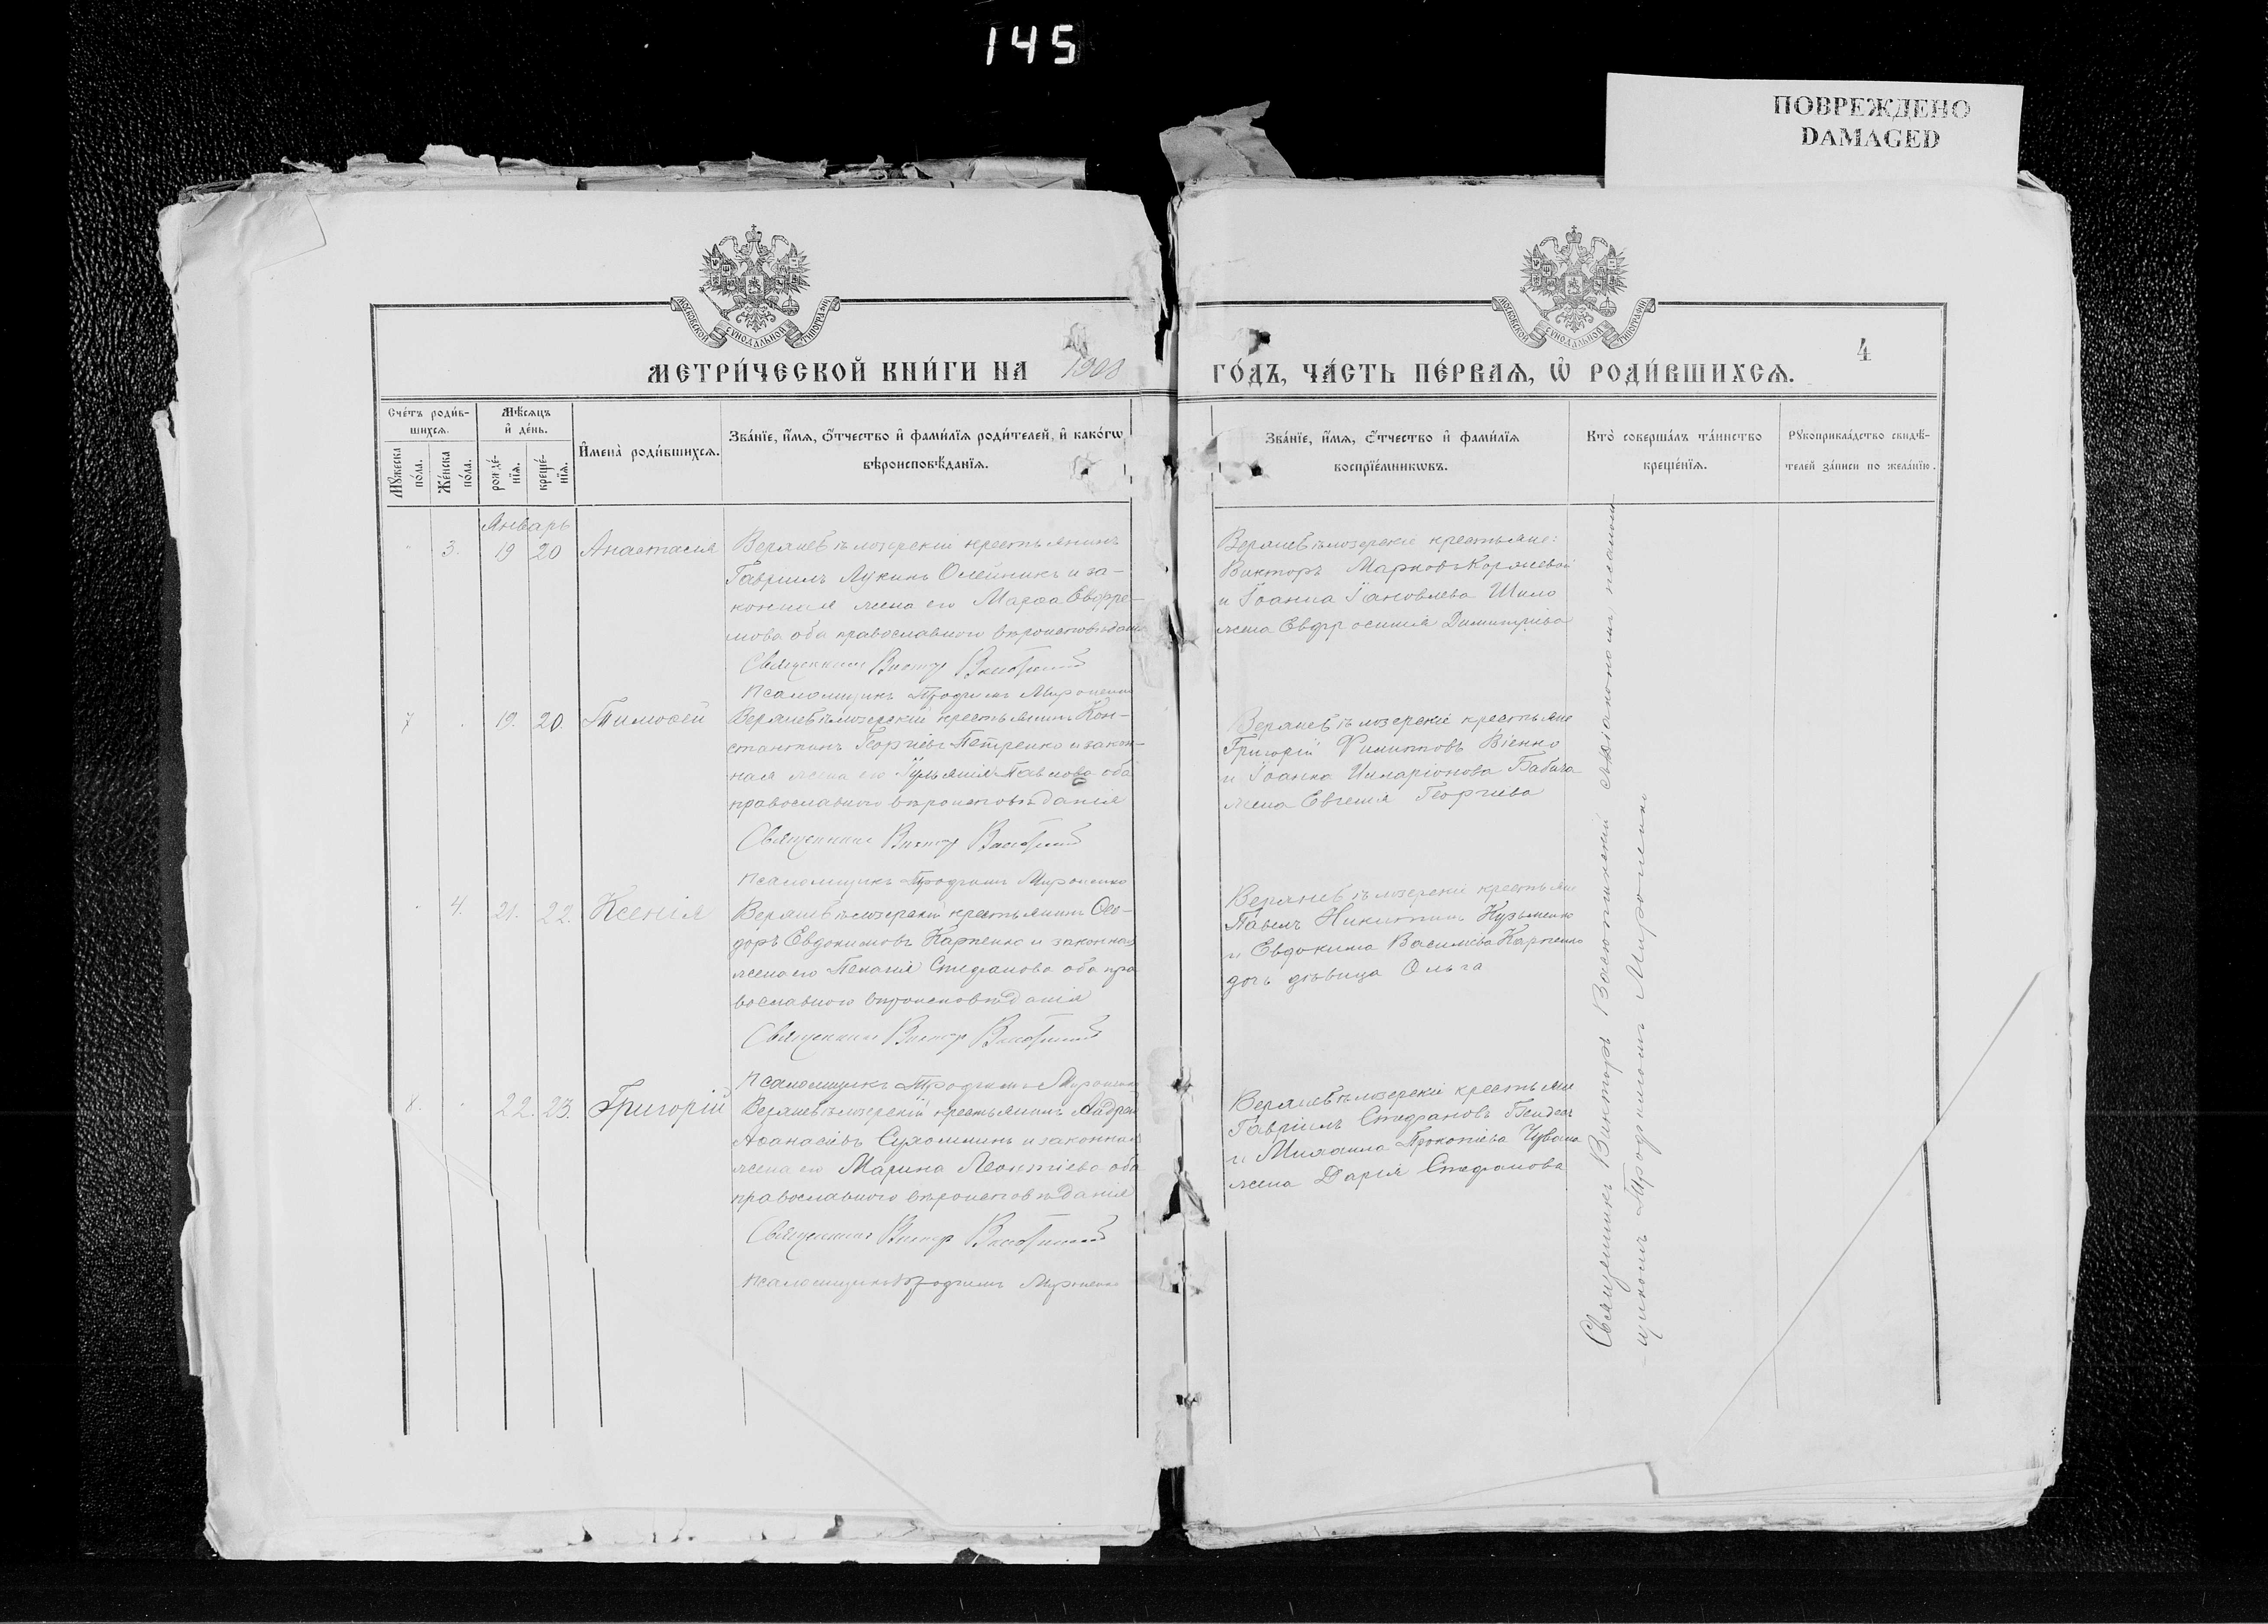 145
ПОВРЕЖДЕНО
DAMAGED
МОСКОВСКОЙ СѴНОДАЛЬНОЙ ТИПОГРАФІИ
МОСКОВСКОЙ СѴНОДАЛЬНОЙ ТИПОГРАФІИ
МЕТРИ́ЧЕСКОЙ КНИ́ГИ НА 1908
ГО́ДЪ, ЧА́СТЬ ПЕ́РВАѦ, Ѡ РОДИ́ВШИХСѦ.
4
Сче́тъ роди́в-
шихсѧ.
Мꙋжеска
по́ла.
Же́нска
по́ла.
Мѣ́сѧцъ
и҆ де́нь.
рожде́-
нїѧ.
креще́-
нїѧ.
И҆мена̀ роди́вшихсѧ.
Зва́нїе, и҆́мѧ, ѻ҆́тчество и҆ фами́лїѧ роди́телей, и҆ како́гѡ
вѣроисповѣ́данїѧ.
Зва́нїе, и҆́мѧ, ѻ҆́тчество и҆ фами́лїѧ
воспрїе́мникѡвъ.
Кто̀ соверша́лъ та́инство
креще́нїѧ.
Рꙋкоприкла́дство свидѣ́-
телей за́писи по жела́нїю.
Январь
3. 19 20 Анастасія
Верхнебѣлозерскій крестьянинъ
Гавріилъ Лукинъ Олейникъ и за-
конная жена его Марѳа Евфре-
мова оба православного вѣроисповѣданія
Священникъ Викторъ
Псаломщикъ Трофимъ Мироненко
Верхнебѣлозерскіе крестьяне:
Викторъ Марковъ
и Іоанна Іаковлева Шило
жена Евфросинія Димитріева
7 19. 20. Тимоѳей
Верхнебѣлозерскій крестьянинъ Кон-
стантинъ Георгіевъ Петренко и закон-
ная жена его Іуліанія Павлова оба
православного вѣроисповѣданія
Священникъ Викторъ
Псаломщикъ Трофимъ Мироненко
Верхнебѣлозерскіе крестьяне
Григорій Филиповъ
и Іоанна Иларіонова Бабича
жена Евгенія Георгіева
4. 21. 22. Ксенія
Верхнебѣлозерскій крестьянинъ Ѳео-
доръ Евдокимовъ Карпенко и законная
жена его Пелагія Стефанова оба пра
вославного вѣроисповѣданія
Священникъ Викторъ
Псаломщикъ Трофимъ Мироненко
Верхнебѣлозерскіе крестьяне
Павелъ Никитинъ Кузьменко
и Евдокима Василіева Карпенко
дочь дѣвица Ольга
8. 22. 23. Григорій
Верхнебѣлозерскій крестьянинъ Андрей
Аѳанасіевъ Сухомлинъ и законная
жена его Марина Леонтіева оба
православного вѣроисповѣданія
Священникъ Викторъ
Псаломщикъ Трофимъ Мироненко
Верхнебѣлозерскіе крестьяне
Гавріилъ Стефановъ
и Михаила Прокопіева
жена Дарія Стефанова
Священникъ Викторъ съ діакономъ псалом-
щикомъ Трофимомъ Мироненко